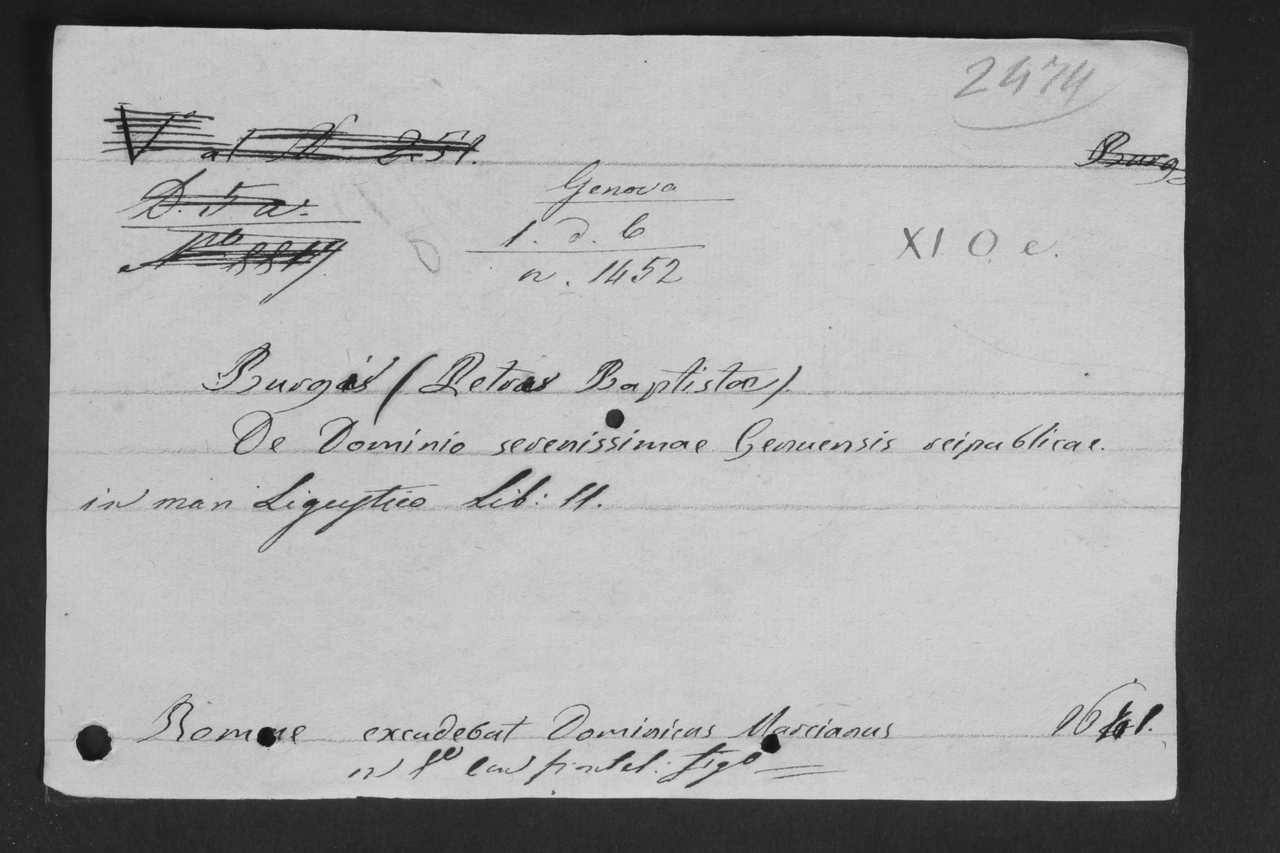 2474
V° al N 251.
Burg
D. 5 a.
N.ro 8819
Genova
1. d. 6
n. 1452
XI O e.
Burgus (Petrus Baptista).
De Dominio serenissimae Genuensis reipublicae.
in mari Ligustico Lib: II.
Romae excudebat Dominicus Marcianus 1641.
in f.o con frontesp: fig.o